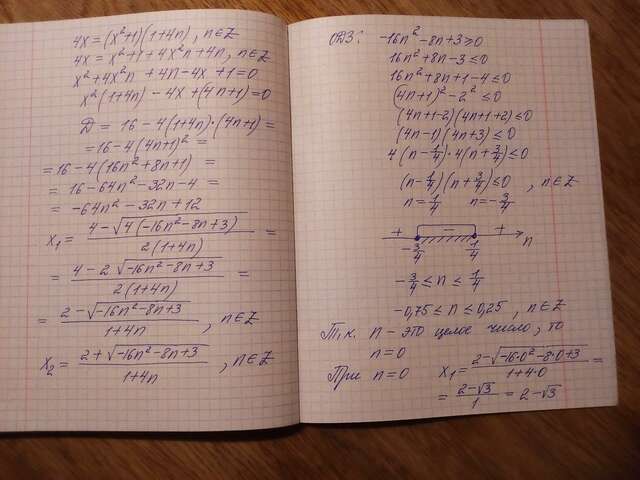 4x = (x²+1)(1+4n), n∈Z
4x = x²+1+4x²n+4n, n∈Z
x²+4x²n+4n-4x+1=0
x²(1+4n)-4x+(4n+1)=0
D = 16-4(1+4n)·(4n+1)=
=16-4(4n+1)²=
=16-4(16n²+8n+1)=
=16-64n²-32n-4=
=-64n²-32n+12
x₁= (4-√4(-16n²-8n+3))/(2(1+4n)) =
= (4-2√-16n²-8n+3)/(2(1+4n)) =
= (2-√-16n²-8n+3)/(1+4n), n∈Z
x₂= (2+√-16n²-8n+3)/(1+4n), n∈Z
ОДЗ: -16n²-8n+3≥0
16n²+8n-3≤0
16n²+8n+1-4≤0
(4n+1)²-2²≤0
(4n+1-2)(4n+1+2)≤0
(4n-1)(4n+3)≤0
4(n-1/4)·4(n+3/4)≤0
(n-1/4)(n+3/4)≤0, n∈Z
n=1/4 n=-3/4
+ - + n
-3/4 1/4
-3/4≤n≤1/4
-0,75≤n≤0,25, n∈Z
Т.к. n - это целое число, то
n=0
При n=0 x₁= (2-√-16·0²-8·0+3)/(1+4·0) =
= (2-√3)/1 = 2-√3